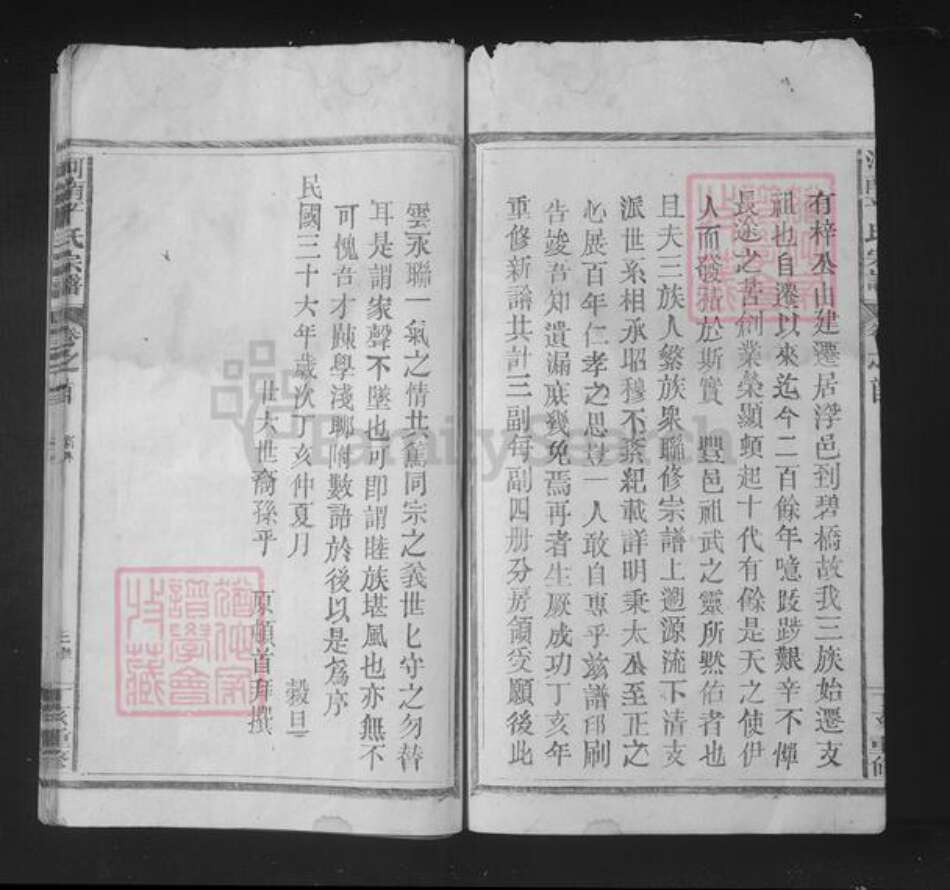 有梓公由建遷居浮邑到碧橋故我三族始遷支
祖也自遷以來迄今二百餘年噫跋踄艱辛不憚
長途之苦創業榮顯頓起十代有餘是天之使伊
人而發積於斯實 豐邑祖武之靈所默佑者也
且夫三族人繁族衆聯修宗譜上遡源流下清支
派世系相承昭穆不紊紀載詳明秉太公至正之
心展百年仁孝之思豈一人敢自專乎茲譜印刷
告竣吾知遺漏庶幾免焉再者生厥成功丁亥年
重修新譜共計三副每副四册分房領受願後此
雲永聯一氣之情共篤同宗之義世匕守之勿替
耳是謂家聲不墜也可即謂睦族堪風也亦無不
可愧吾才踈學淺聊附數語於後以是爲序
民國三十六年歲次丁亥仲夏月 穀旦
世大世裔孫平 原頓首拜撰
河南平氏宗譜
卷之首
FamilySearch